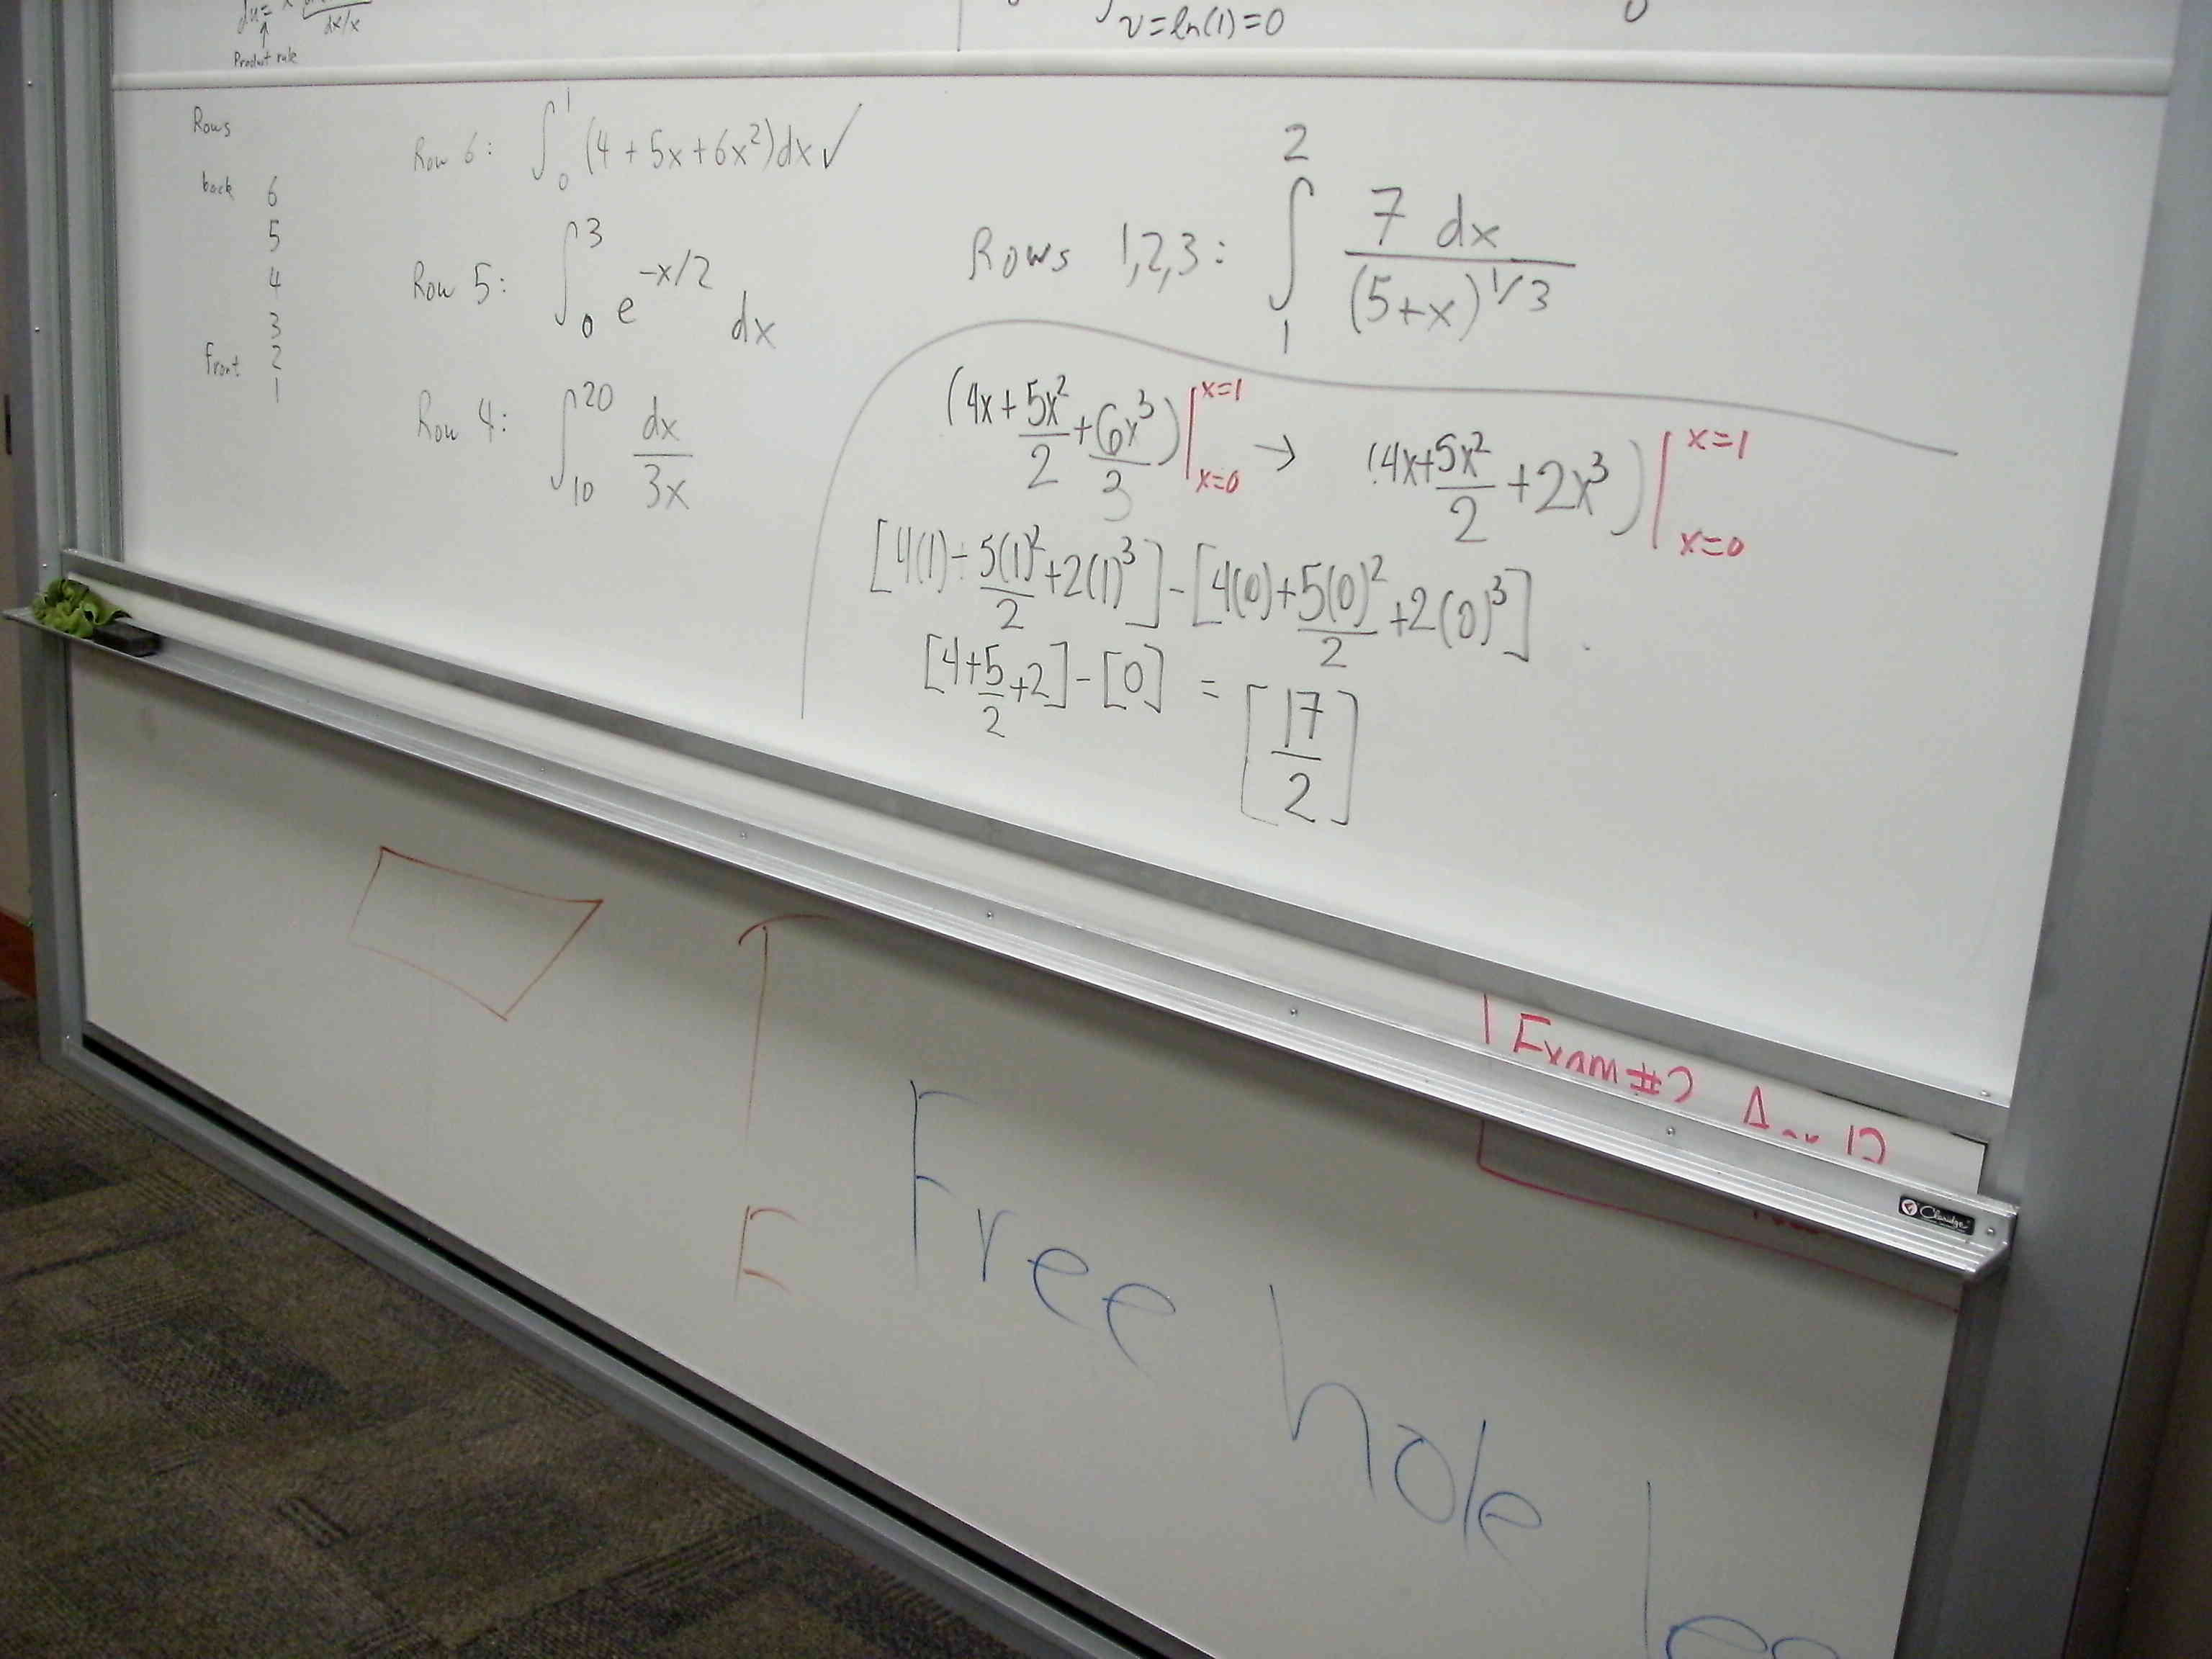 du=
dx/x
Product rule
v=ln(1)=0
Rows
back 6
5
4
3
front 2
1
Row 6: ∫₀¹ (4 + 5x + 6x²)dx ✓
Row 5: ∫₀³ e^(-x/2) dx
Row 4: ∫₁₀²⁰ dx/3x
Rows 1,2,3: ∫₁² 7 dx/(5+x)^(1/3)
(4x + 5x²/2 + 6x³/3)|x=1 x=0 → (4x + 5x²/2 + 2x³)|x=1 x=0
[4(1) + 5(1)²/2 + 2(1)³] - [4(0) + 5(0)²/2 + 2(0)³]
[4 + 5/2 + 2] - [0] = [17/2]
Exam #2
Claridge
F
Free hole